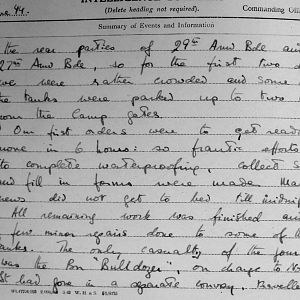 INTELLIGENCE
(Delete heading not required).
Commanding Offi
ne 44.
Summary of Events and Information
the rear parties of 29th Armd Bde and
27th Armd Bde, so for the first two d
we were rather crowded and some
the tanks were parked up to two
from the Camp gates.
Our first orders were to get ready
move in 6 hours: so frantic efforts
to complete waterproofing, collect s
and fill in forms were made. Ma
crews did not get to bed till midnigh
All remaining work was finished an
few minor repairs done to some of th
tanks. The only casualty of the jour
was the Bulldozer, on change to
had gone in a separate convoy.